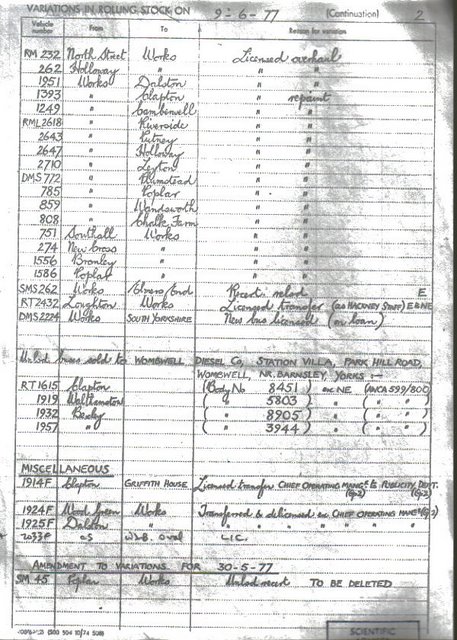 VARIATIONS IN ROLLING STOCK ON 9-6-77 (Continuation) 2
Vehicle number From To Reason for variation
RM 232 North Street Works Licensed overhaul
262 Holloway " " "
1951 Works Dalston " "
1393 " Clapton " repaint
1249 " Camberwell " "
RML 2618 " Riverside " "
2643 " Putney " "
2647 " Holloway " "
2710 " Leyton " "
DMS 772 " Plumstead " "
785 " Poplar " "
859 " Wandsworth " "
808 " Chalk Farm " "
751 Southall Works " "
274 New Cross " " "
1556 Bromley " " "
1586 Poplar " " "
SMS 262 Works Elmers End Recert. relicd E
RT 2432 Loughton Works Licensed transfer (as HACKNEY STAFF) E&NE
DMS 2224 Works SOUTH YORKSHIRE New bus licensed (on loan)
Unlicd buses sold to WOMBWELL DIESEL Co, STATION VILLA, PARK HILL ROAD,
WOMBWELL, NR. BARNSLEY, YORKS :-
RT 1615 Clapton (Body No 8451 ) ex NE (ANCA 599/800)
1919 Walthamstow ( " 5803 ) " ( " " )
1932 Bexley ( " 8905 ) " ( " " )
1957 " ( " 3944 ) " ( " " )
MISCELLANEOUS
1914F Clapton GRIFFITH HOUSE Licensed transfer CHIEF OPERATING MANGR to PUBLICITY DEPT.
(Gp2) (Gp2)
1924F Wood Green Works Transferred & delicensed ex CHIEF OPERATING MANGR (Gp2)
1925F Dalston " " " " " " "
2033F CS W.L.B. oval LIC.
AMENDMENT TO VARIATIONS FOR 30-5-77
SM 45 Poplar Works Unlicd recert TO BE DELETED
504 10/74
SCIENTIFIC